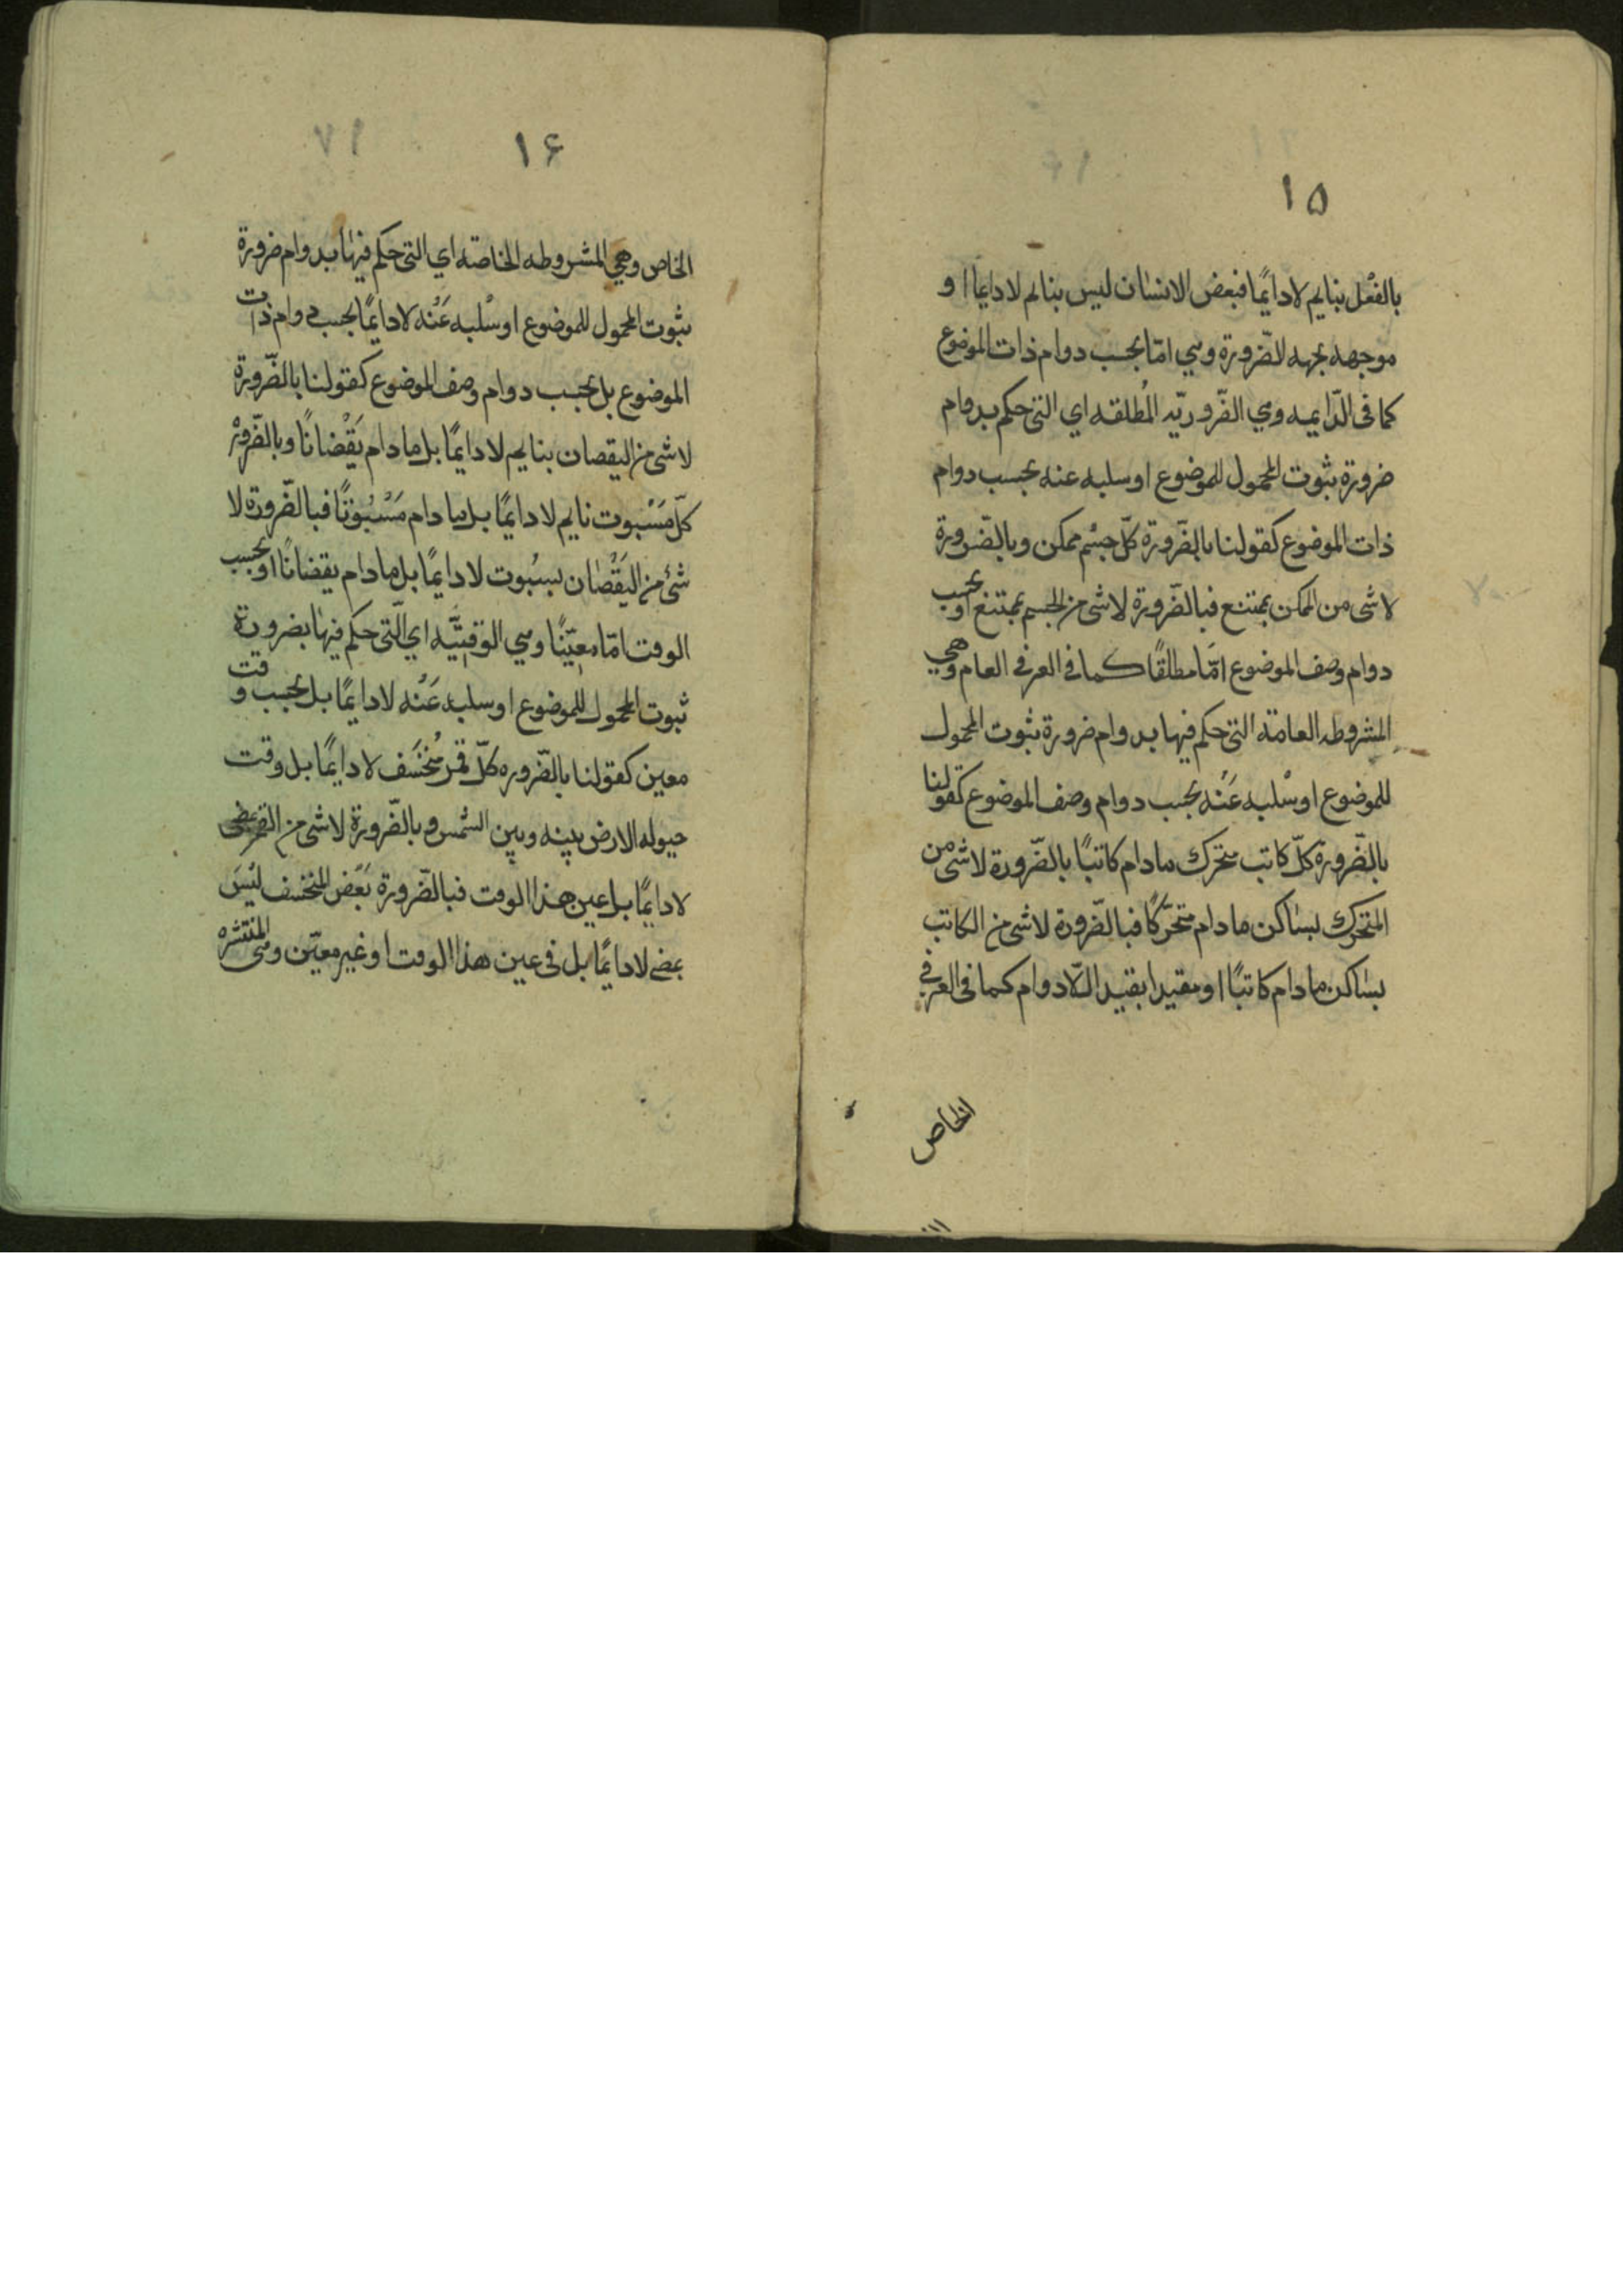 ١٥
بالفعْل بنايم لادايمًا فبعض الانسٰان ليس بنايم لادايمًا او
موجهه بجهه لاضّرورة وهي امّا بحسب دوام ذات الموضوع
كما فى الدّايمه وهي الضّروريّه المُطلقه اي التى حكم بدوام
ضرورة بثوت المحمول للموضوع اوسلبه عنه بحسب دوام
ذات الموضوع كقولنا بالضّرورة كلّ جسْم ممكن وبالضّرورة
لاشى من الممكن بممتنع فبالضّرورة لاشى من الجسم بممتنع اوبحسب
دوام وصف الموضوع امّا مطلقًا كما فى العرفى العام وهي
المشروطه العامّة التى حكم فيها بدوام ضرورة بثوت المحمول
للموضوع اوسْلبه عَنْه بحسب دوام وصف الموضوع كقولنا
بالضّرورة كلّ كاتب متحرك مادام كاتبًا بالضّرورة لاشى من
المتحرك بسٰاكن مادام متحرّكًا فبالضّرورة لاشى من الكاتب
بسٰاكن مادام كاتبًا اومقيدا بقيد اللّادوام كما فى العرفى
الخاص
١۶
الخاص وهي المشروطه الخاصّه اي التى حكم فيهٰا بدوام ضرورة
بثوت المحمول للموضوع اوسْلبه عَنْه لادايمًا بحسب دوام ذات
الموضوع بل بحسب دوام وصف الموضوع كقولنا بالضّرورة
لاشى من اليقصان بنايم لادايمًا بل مادام يَقْضانًا وبالضّرورة
كلّ مَسْبوت نايم لادايمًا بل مادام مَسْبُوتًا فبالضّرورة لا
شئ من اليَقْصٰان بسبُوت لادايمًا بل مادام يقضانًا اوبحسب
الوقت امّا معيّنًا وهي الوَقتيَّه اي الّتى حكم فيهٰا بضرورة
ثبوت المحمول للموضوع اوسلبه عَنْه لادايمًا بل بحسب وقت
معين كقولنا بالضّروره كلّ قمر مُنْخسَف لادايمًا بل وقت
حيوله الارض بينه وبين الشّمس وبالضّرورة لاشى من القمر بمضى
لادايمًا بل عين هذا الوقت فبالضّرورة بَعْض المنخسف ليْسَ
بمضى لادايمًا بل فى عين هذا الوقت اوغير معيّن وهى المنتشره